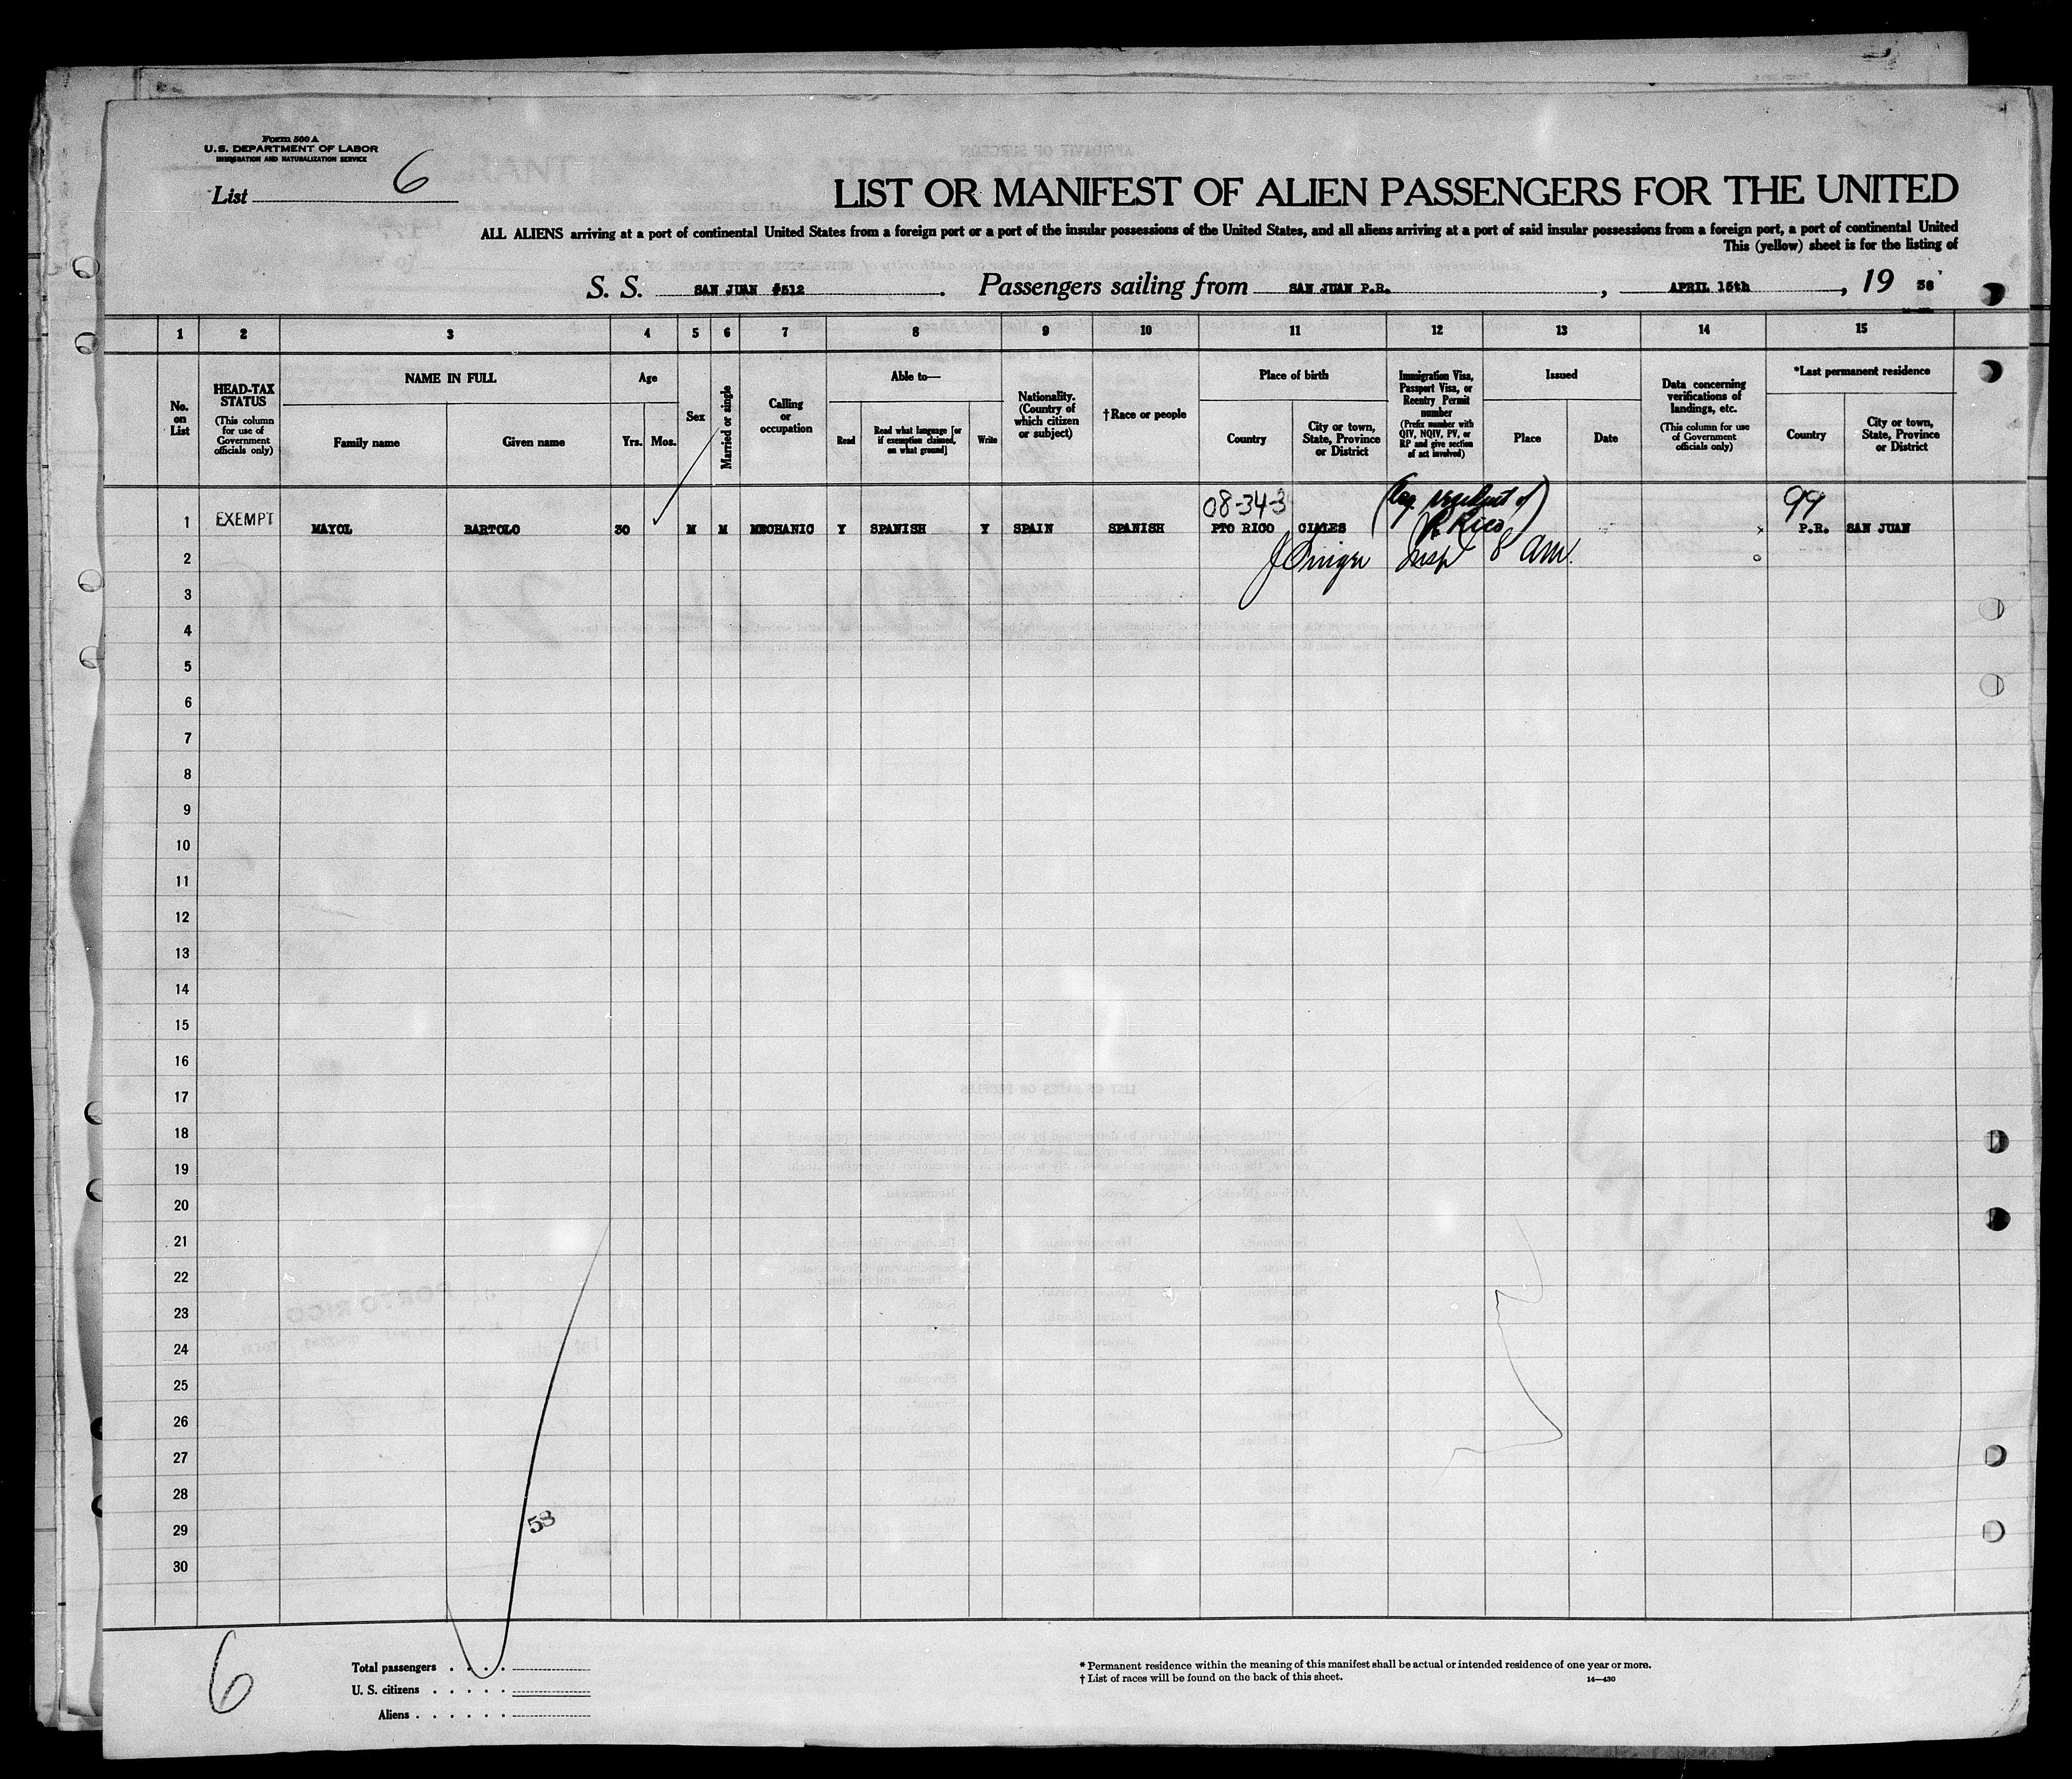 Form 500 A
U.S. DEPARTMENT OF LABOR
IMMIGRATION AND NATURALIZATION SERVICE
List 6
LIST OR MANIFEST OF ALIEN PASSENGERS FOR THE UNITED
ALL ALIENS arriving at a port of continental United States from a foreign port or a port of the insular possessions of the United States, and all aliens arriving at a port of said insular possessions from a foreign port, a port of continental United
This (yellow) sheet is for the listing of
S. S. SAN JUAN #512. Passengers sailing from SAN JUAN P.R., APRIL 15th, 19 38
1 2 3 4 5 6 7 8 9 10 11 12 13 14 15
No. on List
HEAD-TAX STATUS
(This column for use of Government officials only)
NAME IN FULL
Family name
Given name
Age
Yrs.
Mos.
Sex
Married or single
Calling or occupation
Able to—
Read
Read what language [or if exemption claimed, on what ground]
Write
Nationality. (Country of which citizen or subject)
†Race or people
Place of birth
Country
City or town, State, Province or District
Immigration Visa, Passport Visa, or Reentry Permit number
(Prefix number with QIV, NQIV, PV, or RP and give section of act involved)
Issued
Place
Date
Data concerning verifications of landings, etc.
(This column for use of Government officials only)
*Last permanent residence
Country
City or town, State, Province or District
08-34-3
99
1 EXEMPT MAYOL BARTOLO 30 M M MECHANIC Y SPANISH Y SPAIN SPANISH PTO RICO CIALES P. Rico) x P.R. SAN JUAN
2 Insp 8 am.
3
4
5
6
7
8
9
10
11
12
13
14
15
16
17
18
19
20
21
22
23
24
25
26
27
28
29
30
58
6
Total passengers
U. S. citizens
Aliens
* Permanent residence within the meaning of this manifest shall be actual or intended residence of one year or more.
† List of races will be found on the back of this sheet.
14—430